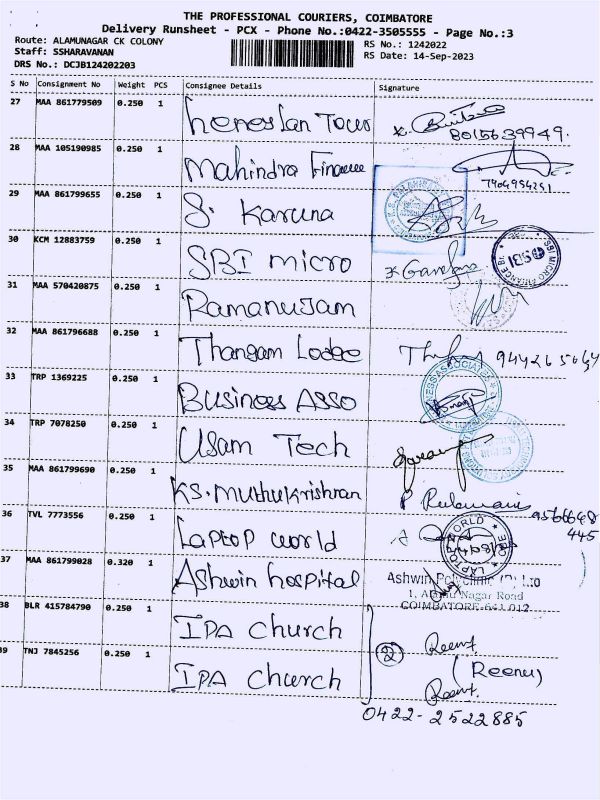 THE PROFESSIONAL COURIERS, COIMBATORE
Delivery Runsheet - PCX - Phone No.:0422-3505555 - Page No.:3
Route: ALAMUNAGAR CK COLONY RS No.: 1242022
Staff: SSHARAVANAN RS Date: 14-Sep-2023
DRS No.: DCJB124202203
S No Consignment No Weight PCS Consignee Details Signature
27 MAA 861779509 0.250 1
8015639949.
28 MAA 105190985 0.250 1 Mahindra Finance
29 MAA 861799655 0.250 1 S. Karuna
30 KCM 12883759 0.250 1 SBI micro
31 MAA 570420875 0.250 1 Ramanujam
32 MAA 861796688 0.250 1 Thangam Lodge
33 TRP 1369225 0.250 1 Business Asso
34 TRP 7078250 0.250 1 Usam Tech
35 MAA 861799690 0.250 1 KS. Muthukrishnan
36 TVL 7773556 0.250 1 Laptop world
9566648
445
37 MAA 861799028 0.320 1 Ashwin hospital
Ashwin Polyclinic (P) Ltd
1, Alamu Nagar Road
COIMBATORE-641 012
38 BLR 415784790 0.250 1 IPA church
2
(Reenu)
39 TNJ 7845256 0.250 1 IPA church
0422-2522885